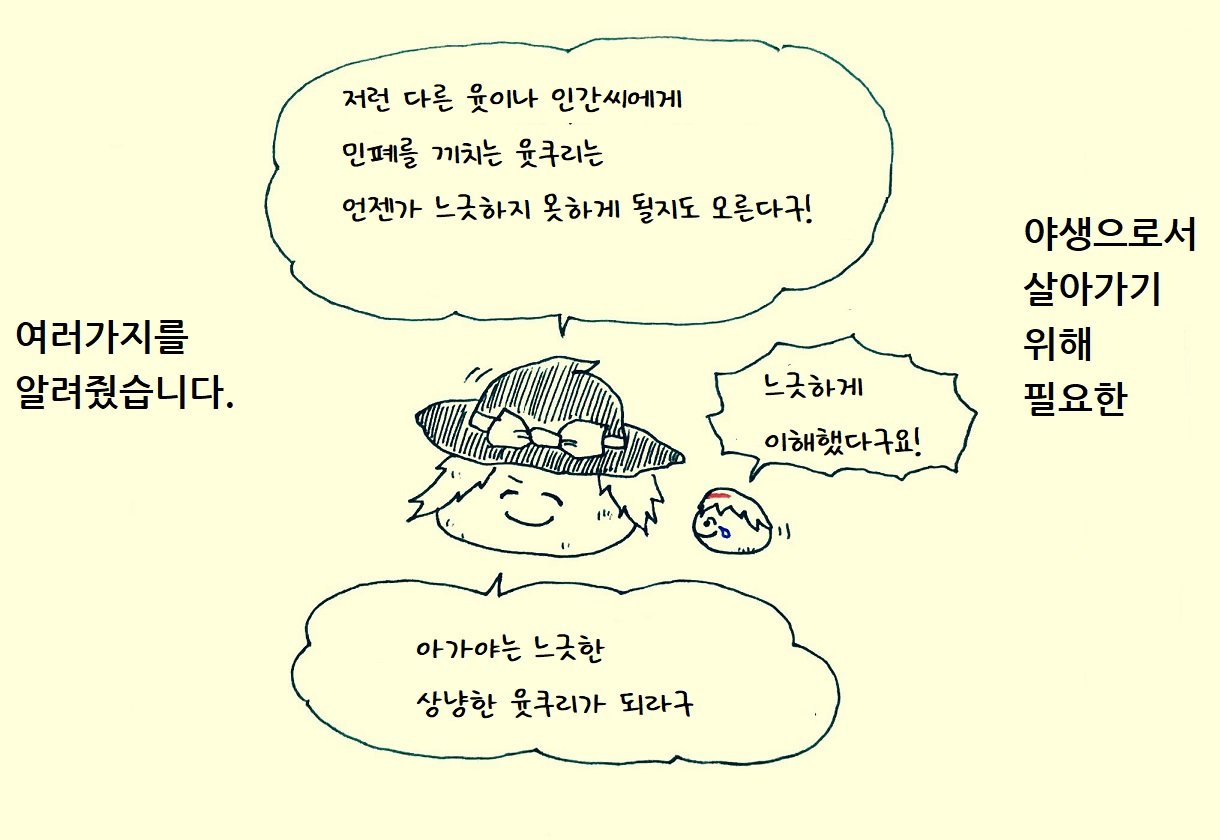 야생으로서
살아가기
위해
필요한
저런 다른 윳이나 인간씨에게
민폐를 끼치는 윳쿠리는
언젠가 느긋하지 못하게 될지도 모른다구!
느긋하게
이해했다구요!
아가야는 느긋한
상냥한 윳쿠리가 되라구
여러가지를
알려줬습니다.